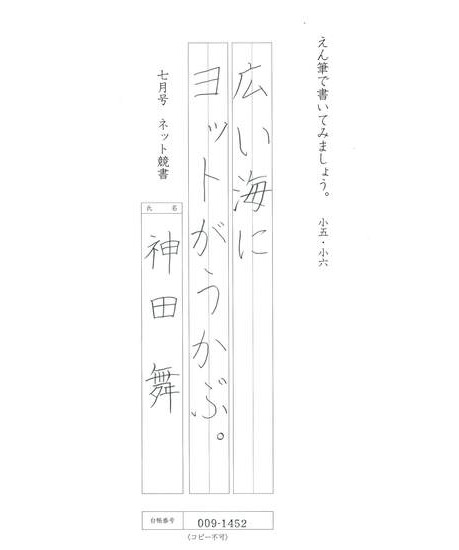 えん筆で書いてみましょう。　小五・小六
広い海に
ヨットがうかぶ。
七月号　ネット競書
氏名
神田舞
台帳番号　009-1452
（コピー不可）